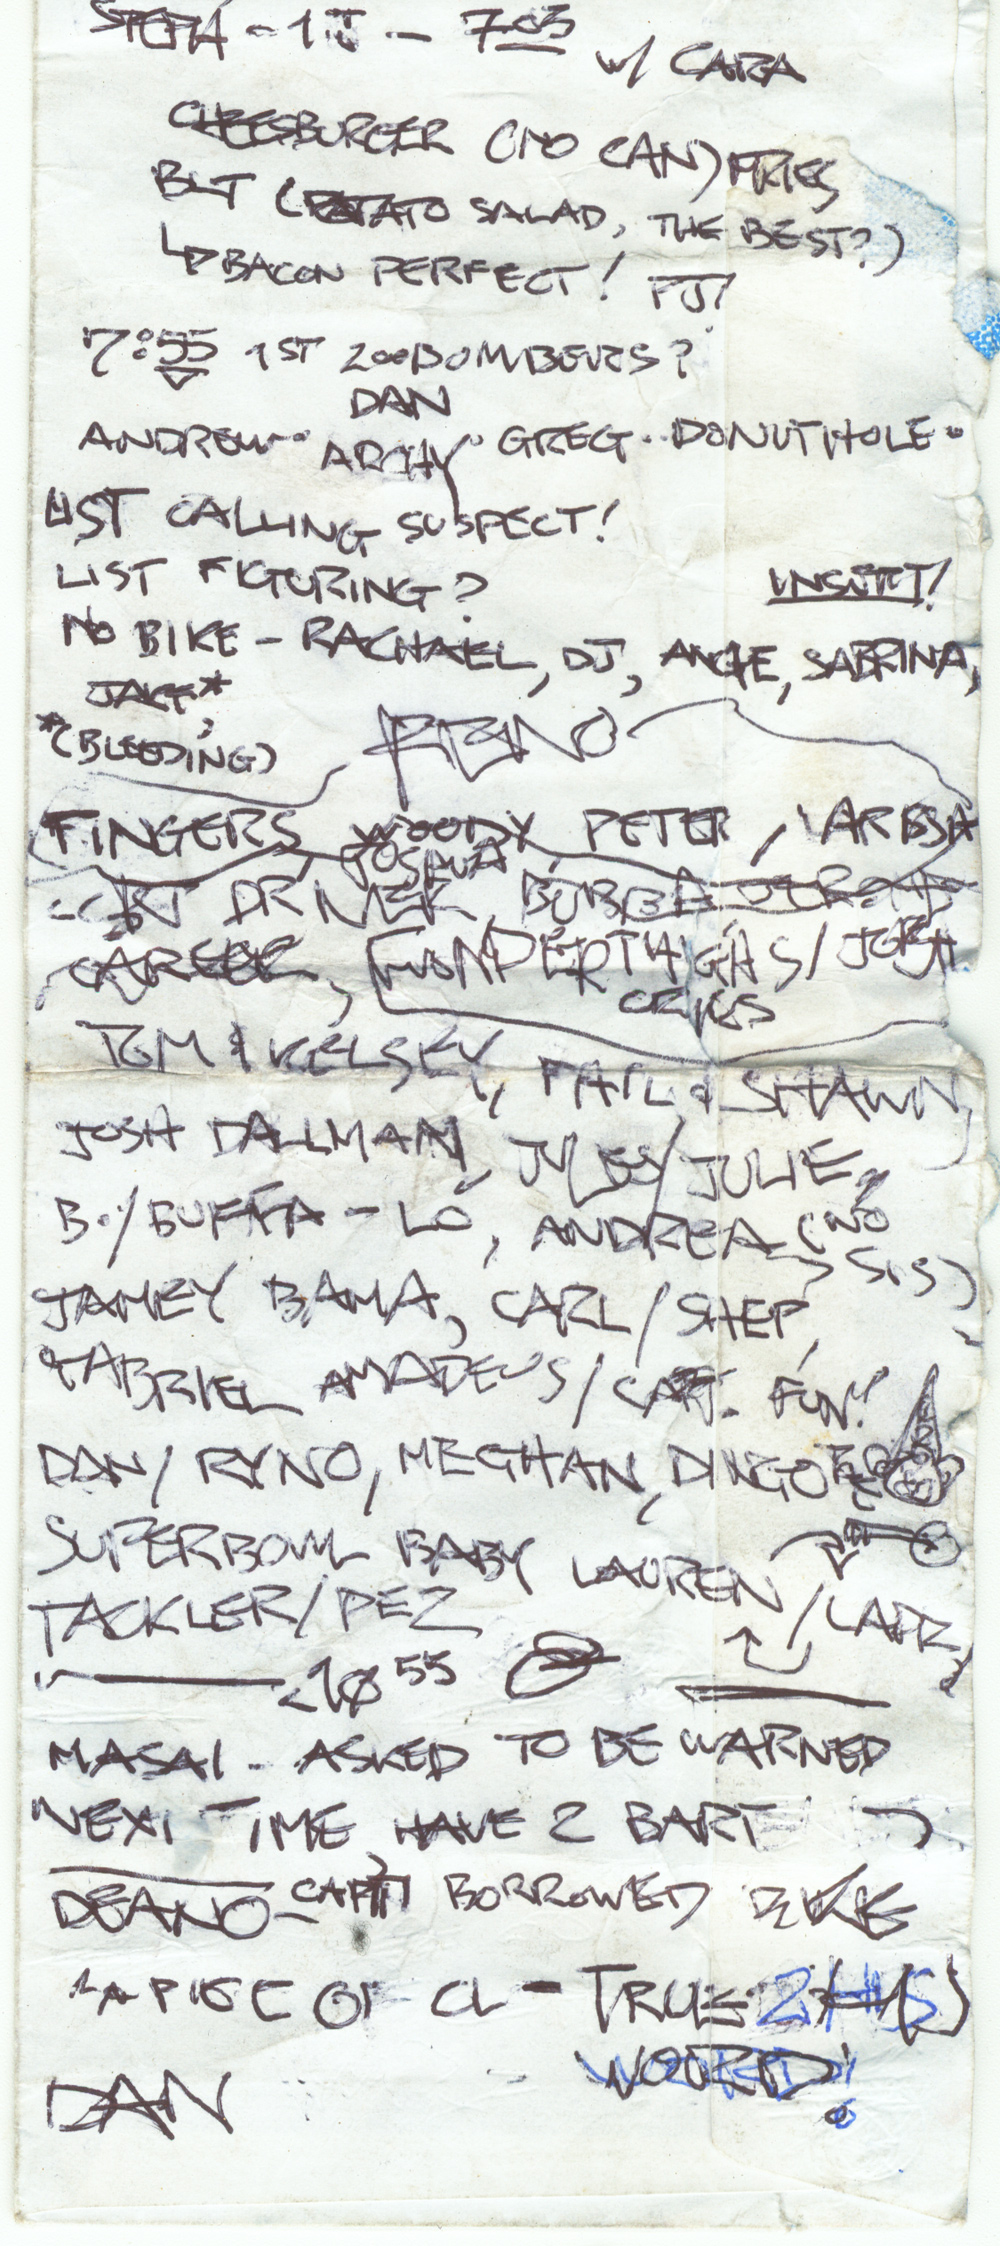 STEPH - 1 J - 7:03
W/ CARA
CHEESBURGER (NO CAN) FRIES
BLT (POTATO SALAD, THE BEST?)
BACON PERFECT! PJ!
7:55 1ST ZOOBOMBERS?
DAN
ANDREW ARCHY GREG DONUTHOLE
LIST CALLING SUSPECT!
LIST FIGTURING?
NO BIKE - RACHAEL, DJ, ANGIE, SABRINA,
JAKE*,
*(BLEEDING)
FINGERS, WOODY, PETER,
JOSHUA
DRIVER,
THUNDERTHIGHS/JOSH
TOM & KELSEY, PHIL & SHAWN,
JOSH DALLMAN, JULES/JULIE,
B./BUFFA-LO, ANDREA (NO
SIS)
JAMEY BAMA, CARL/SHEP,
GABRIEL AMADEUS/CAPT. FUN!
DAN/RYNO, MEGHAN, DINGO
SUPERBOWL BABY LAUREN
TACKLER/PEZ
10 55
MASAI - ASKED TO BE WARNED
NEXT TIME HAVE 2 BART
DEANO - CAPTN BORROWED BIKE
A PIECE OF CL - TRUE 2 HIS
WORD!
DAN